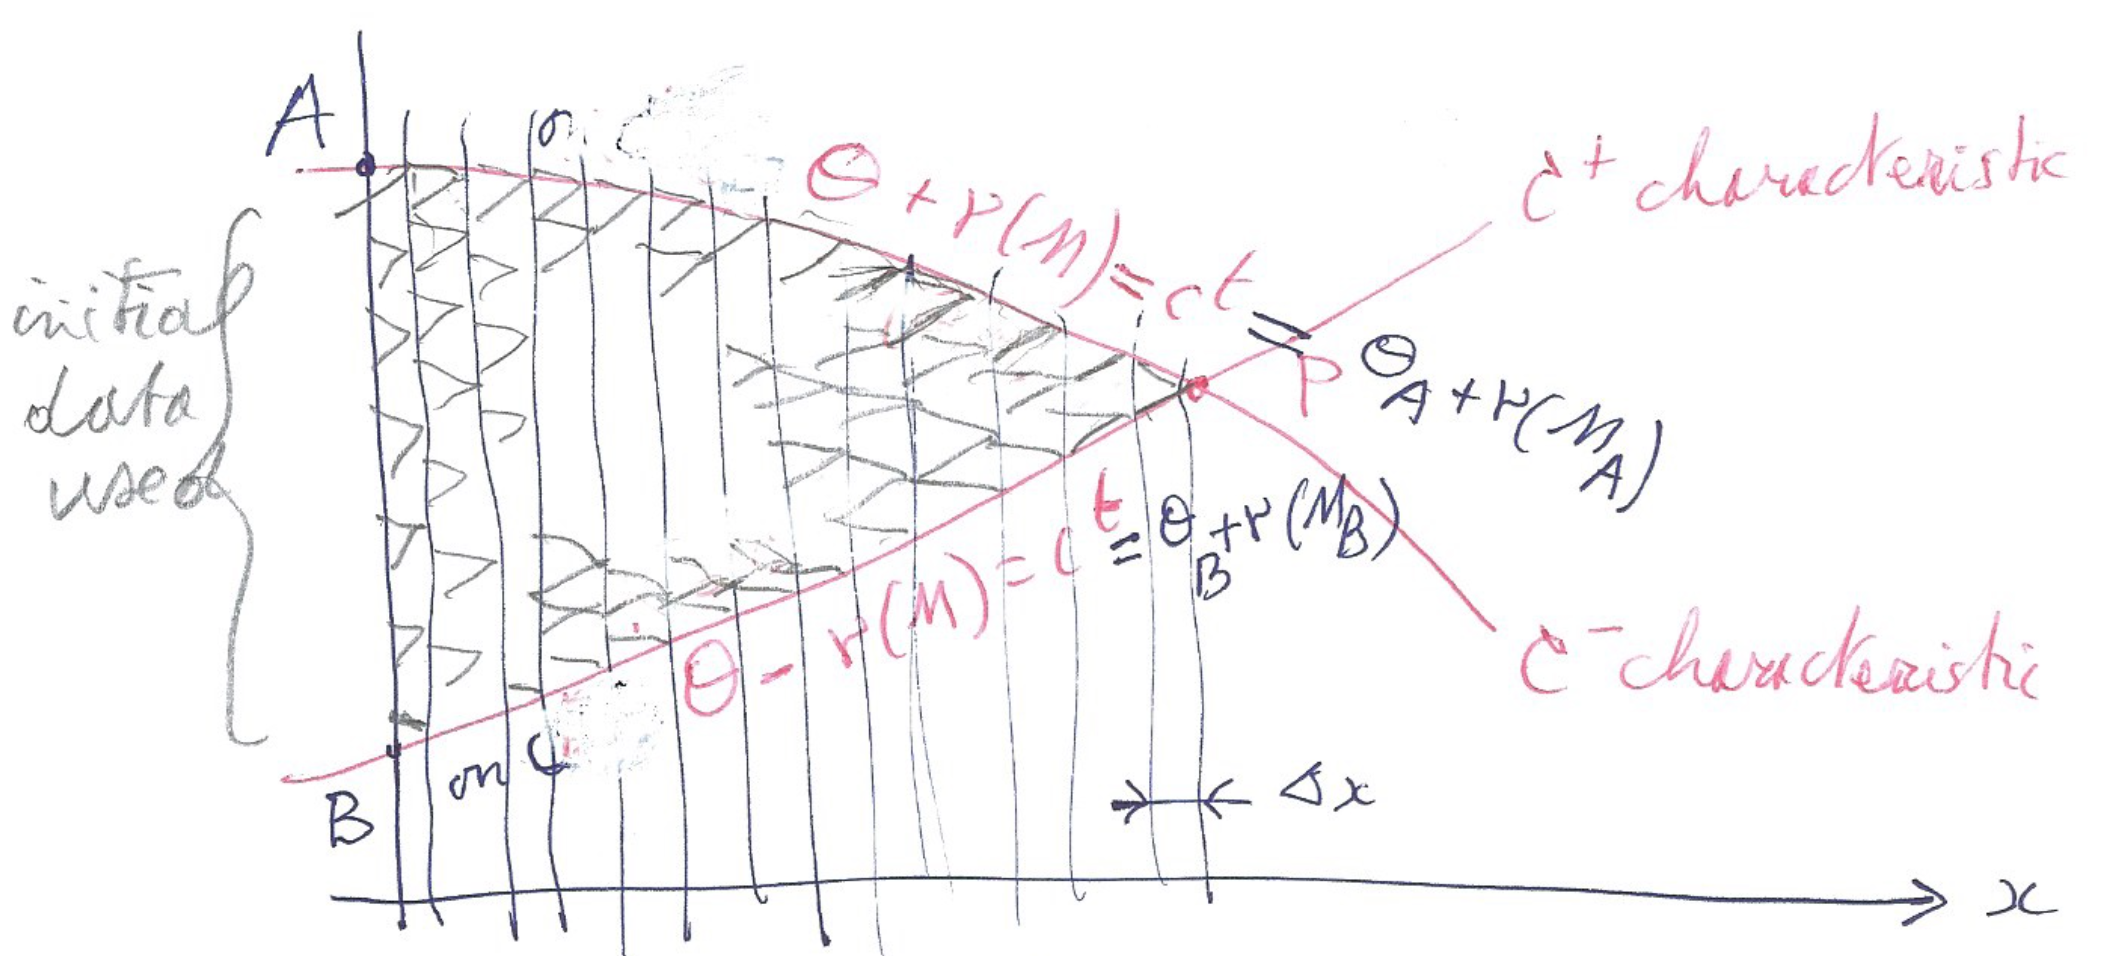 A
on C
θ + ν(M) = ct
= θ_A + ν(M_A)
C⁺ characteristic
P
initial
data
used
θ - ν(M) = ct
= θ_B + ν(M_B)
C⁻ characteristic
on C
B
Δx
x